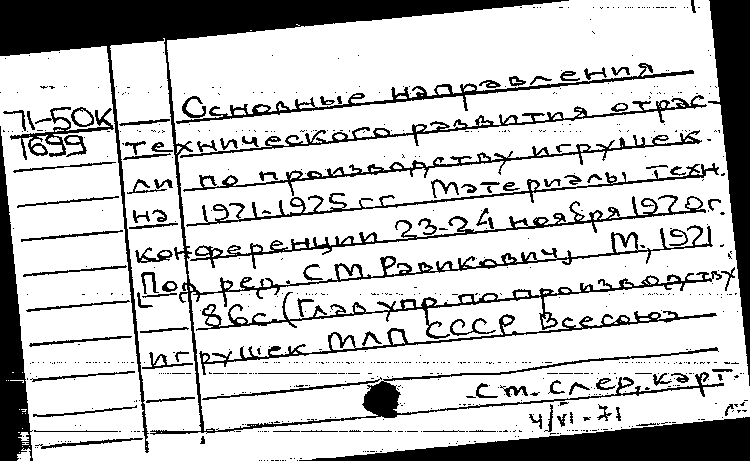 71-50К
1699
Основные направления
технического развития отрас-
ли по производству игрушек
на 1971-1975 гг. Материалы техн.
конференции 23-24 ноября 1970г.
Под ред. С.М. Равикович, М., 1971.
86с. (Глав упр. по производству
игрушек МЛП СССР. Всесоюз
см. след. карт.
4/VI-71